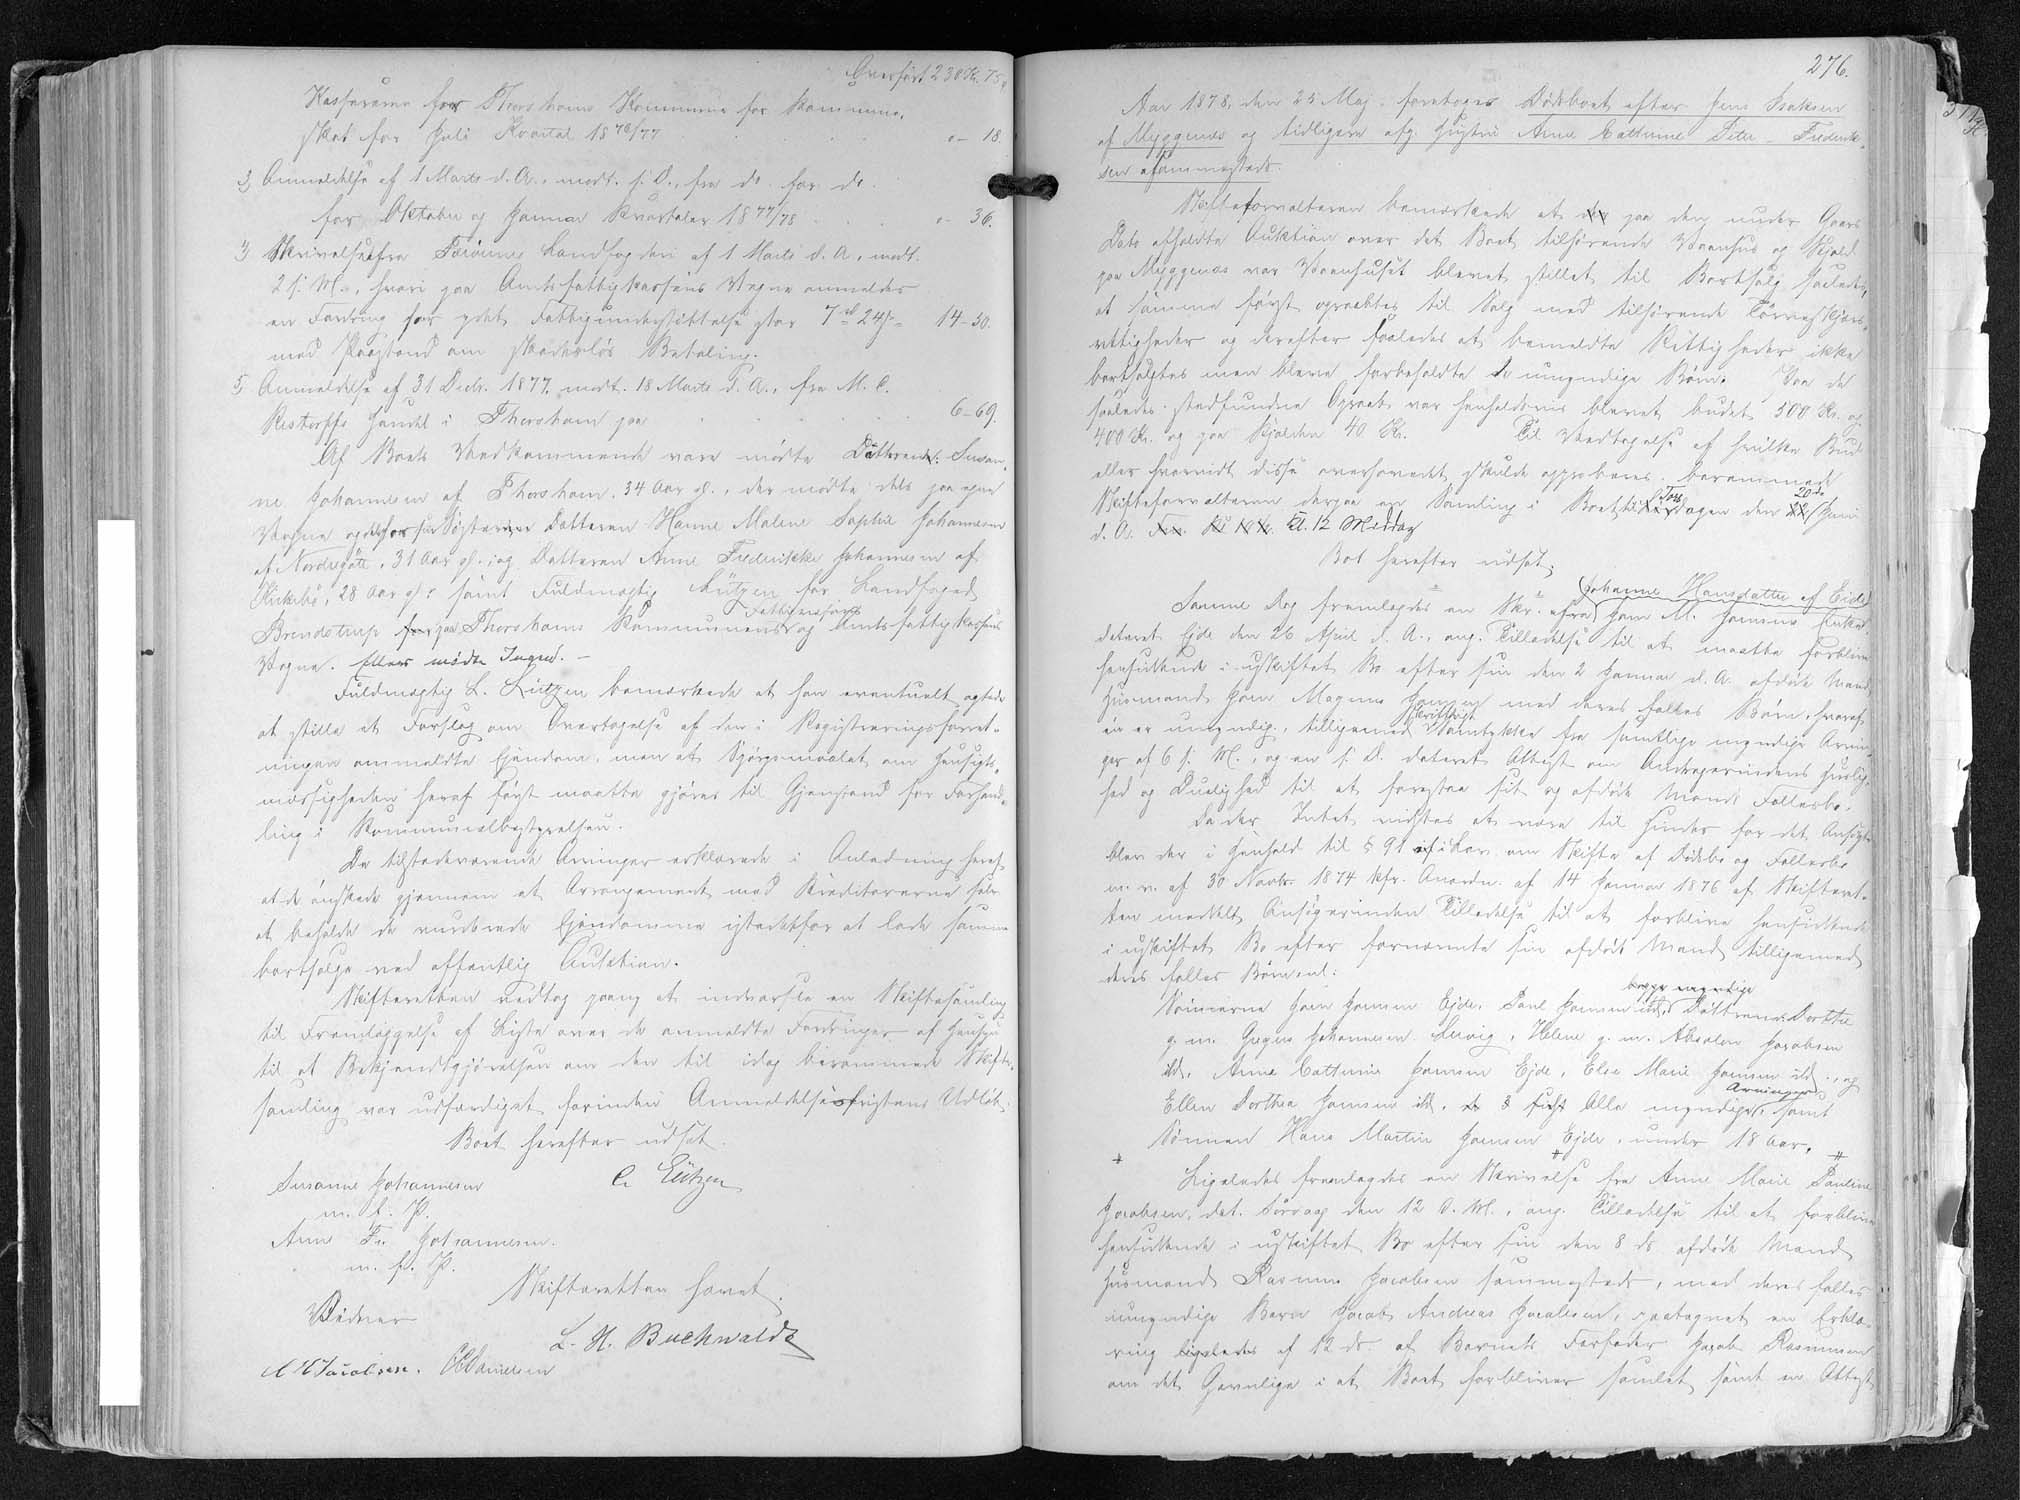 Overført 238 Kr. 75.
Kassereren for Thorshavns Kommune for Kommune-
skat for Juli Kvartal 1876/77 . . . . " - 18.
3, Anmeldelse af 1 Marts d. A., modt. s. D., fra ds. for ds.
for Oktober og Januar Kvartaler 1877/78 . . . " - 36.
4, Skrivelse fra Færöernes Landfogderi af 1 Marts d. A., modt.
2 s. M., hvori paa Amtsfattigkassens Vegne anmeldes
en Fordring for ydet Fattigunderstøttelse stor 7 rd 24 s = 14 - 50.
med Paastand om skadesløs Betaling.
5, Anmeldelse af 31 Decb. 1877, modt. 18 Marts d. A., fra M. C.
Restorffs Handel i Thorshavn paa . . . . 6 - 69.
Af Boets Vedkommende vare mødte Døttrene: Susan-
ne Johannesen af Thorshavn, 34 Aar gl., der mødte dels paa egne
Vegne og dels for sin Søster Datteren Hanne Malene Sophie Johannesen
af Nordregøte, 31 Aar gl., og Datteren Anne Frederikke Johannesen af
Kirkebö, 28 Aar gl., samt Fuldmægtig Lützen for Landfoged
Brendstrup for paa Thorshavns Kommunes Fattigvæsens og Amtsfattigkassens
Vegne. Ellers mødte Ingen. -
Fuldmægtig L. Lützen bemærkede at han eventuelt agtede
at stille et Forslag om Overtagelse af den i Registreringsforret-
ningen ommeldte Ejendom, men at Spørgsmaalet om Hensigts-
mæssigheden heraf først maatte gjøres til Gjenstand for Forhand-
ling i Kommunalbestyrelsen.
De tilstedeværende Arvinger erklærede i Anledning heraf
at de ønskede gjennem et Arrangement med Kreditorerne selv
at beholde de vurderede Ejendomme istedetfor at lade samme
bortsælge ved offentlig Auktion.
Skifteretten vedtog paany at indvarsle en Skiftesamling
til Fremlæggelse af Liste over de anmeldte Fordringer af Hensyn
til at Bekjendtgjørelsen om den til idag berammede Skifte-
samling var udfærdiget forinden Anmeldelsesfristens Udløb.
Boet herefter udsat.
Susanne Johannesen
m. f. P.
C. Lützen
Anne Fr. Johannesen.
m. f. P.
Skifteretten hævet.
Vidner
L. H. Buchwaldt
C H Jacobsen. Danielsen
276.
Aar 1878, den 25 Maj, foretoges Dødsboet efter Jens Isaksen
af Myggenæs og tidligere afg. Hustru Anne Cathrine Peter-Frederik-
sen sammesteds.
Skifteforvalteren bemærkede at der paa den under Gaars
Dato afholdte Auktion over det Boet tilhørende Vaanhus og Kjald
paa Myggenæs var Vaanhuset blevet stillet til Bortsalg saaledes,
at samme først opraabtes til Salg med tilhørende Tørveskjærs-
rettigheder og derefter saaledes at bemeldte Rettigheder ikke
bortsolgtes men bleve forbeholdte de umyndige Børn. Paa de
saaledes stedfundne Opraab var henholdsvis blevet budet 500 Kr. og
400 Kr. og paa Kjalden 40 Kr. Til Vedtagelse af hvilke Bud
eller hvorvidt disse overhovedet skulde approberes berammede
Skifteforvalteren derpaa en Samling i Boet til Torsdagen den 20de Juni
d. A. Kl. 12 Middag
Boet herefter udsat.
Samme Dag fremlagdes en Skr. fra Johanne Hansdatter af Eide Joen M. Joensens Enke,
dateret Ejde den 26 April d. A., ang. Tilladelse til at maatte forblive
hensiddende i uskiftet Bo efter sin den 2 Januar d. A. afdøde Mand
Husmand Joen Magnus Joensen med deres fælles Børn, hvoraf
én er umyndig, tilligemed skriftligt Samtykke fra samtlige myndige Arvin-
ger af 6 s. M., og en s. D. dateret Attest om Andragerindens Huslig-
hed og Duelighed til at forestaa sit og afdøde Mands Fællesbo.
Da der Intet vidstes at være til Hinder for det Ansøgte
blev der i Henhold til § 91 i Lov om Skifte af Dødsbo og Fællesbo
m. v. af 30 Novbr. 1874 kfr. Anordn. af 14 Januar 1876 af Skifteret-
ten meddelt Ansøgerinden Tilladelse til at forblive hensiddende
i uskiftet Bo efter fornævnte sin afdøde Mand tilligemed
deres fælles Børn, nl:
Sønnerne Joen Joensen Ejde, Poul Joensen ibd., begge myndige Døttrene: Dorthe
g. m. Gregers Johannesen Selvig, Helene g. m. Absalon Jacobsen
ibd., Anne Cathrine Joensen Ejde, Else Marie Joensen ibd., og
Ellen Dorthea Joensen ibd., Alle myndige Arvinger, samt
Sønnen Hans Martin Joensen Ejde, under 18 Aar.
Ligeledes fremlagdes en Skrivelse fra Anne Marie Pauline
Jacobsen, dat. Sørvaag den 12 d. M., ang. Tilladelse til at forblive
hensiddende i uskiftet Bo efter sin den 8 ds. afdøde Mand
Husmand Rasmus Jacobsen sammesteds, med deres fælles
umyndige Barn Jacob Andreas Jacobsen, paategnet en Erklæ-
ring ligeledes af 12 ds. af Barnets Farfader Jacob Rasmussen
om det Gavnlige i at Boet forbliver samlet, samt en Attest